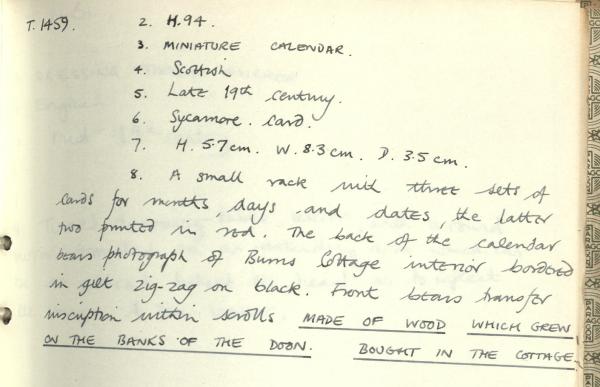 T.1459. 2. H.94.
3. MINIATURE CALENDAR.
4. Scottish
5. Late 19th century.
6. Sycamore. Card.
7. H. 5.7cm. W. 8.3cm. D. 3.5cm.
8. A small rack with three sets of
cards for months, days and dates, the latter
two printed in red. The back of the calendar
bears photograph of Burns Cottage interior bordered
in gilt zig-zag on black. Front bears transfer
inscription within scrolls MADE OF WOOD WHICH GREW
ON THE BANKS OF THE DOON. BOUGHT IN THE COTTAGE